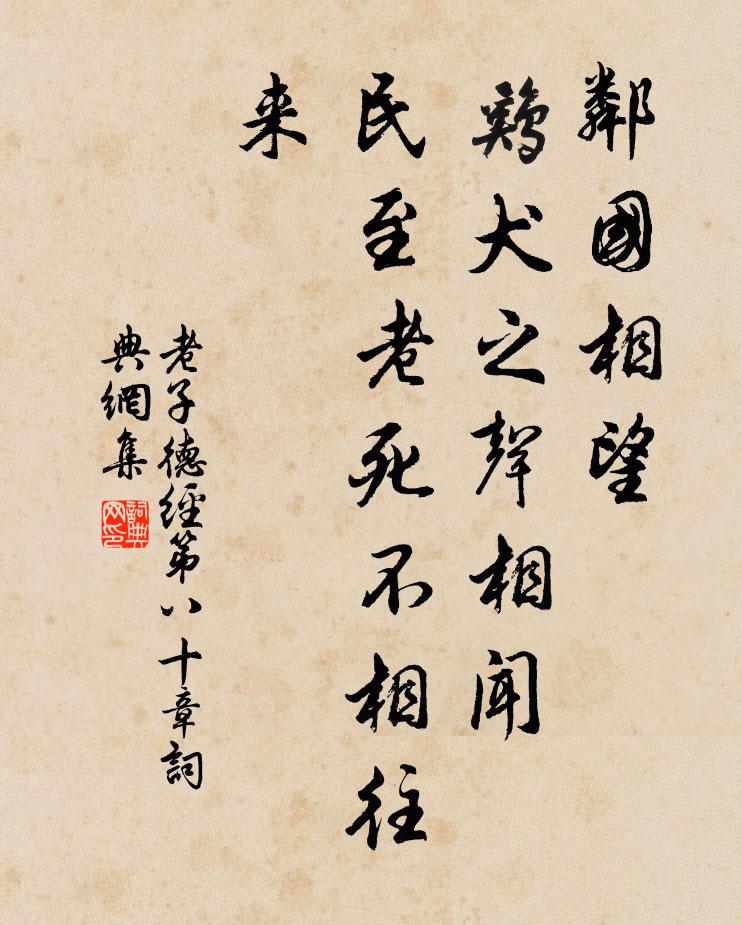 鄰國相望
鷄犬之聲相聞
民至老死不相往
来
老子德經第八十章詞
典網集
詞典网印